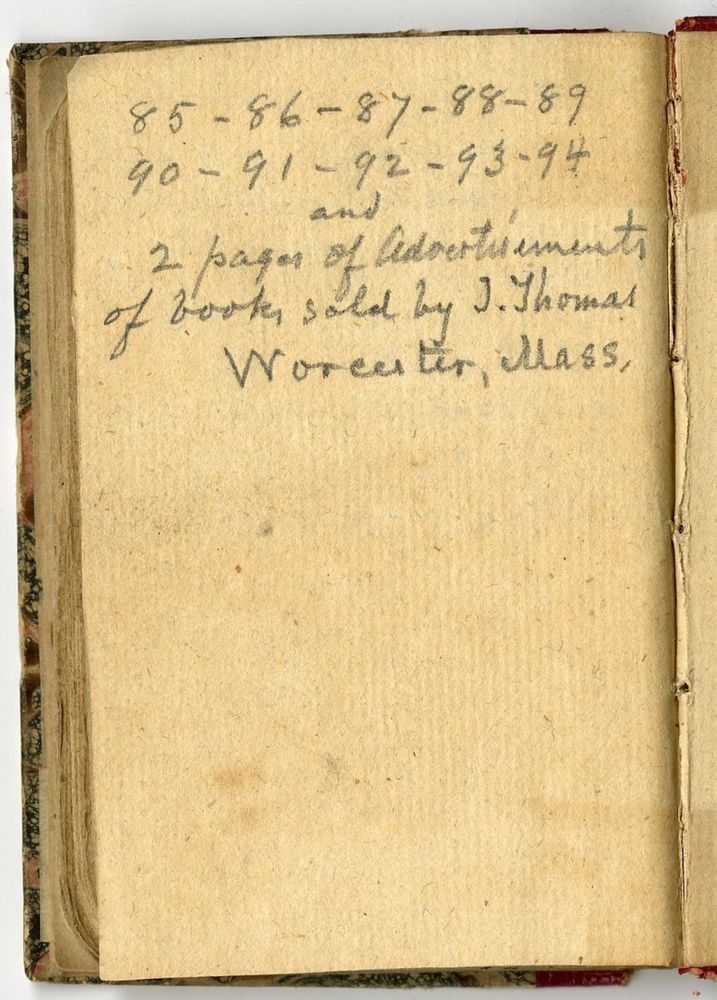 85 - 86 - 87 - 88 - 89
90 - 91 - 92 - 93 - 94
and
2 pages of Advertisements
of books sold by I. Thomas
Worcester, Mass.